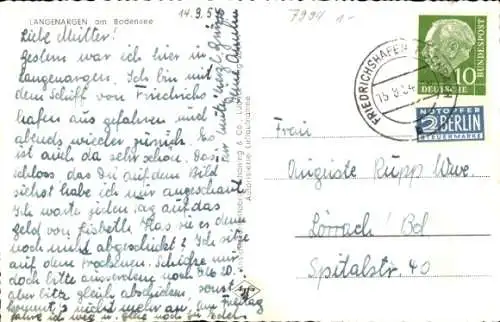 LANGENARGEN am Bodensee
14.9.5
Liebe Mutter!
Gestern war ich hier in
Langenargen. Ich bin mit
dem Schiff von Friedrichs
hafen aus gefahren und
abends wieder zurück. Es
ist auch da sehr schön. Das
Schloss, das Du auf dem Bild
siehst habe ich mir angeschaut
Ich warte jeden Tag auf das
Geld von Lisbeth. Has sie es denn
noch nicht abgeschickt? Ich sitze
auf dem trockenen. Schicke mir
doch bitte ausserdem noch 10.
aber bitte gleich abschicken, sonst
kommt's nicht mehr an, am Freitag
fahre ich weg
7994 1-
FRIEDRICHSHAFEN
DEUTSCHE
BUNDESPOST
10
NOTOPFER
2 BERLIN
STEUERMARKE
Frau
Auguste Rupp Wwe.
Lörrach / Bd
Spitalstr. 40